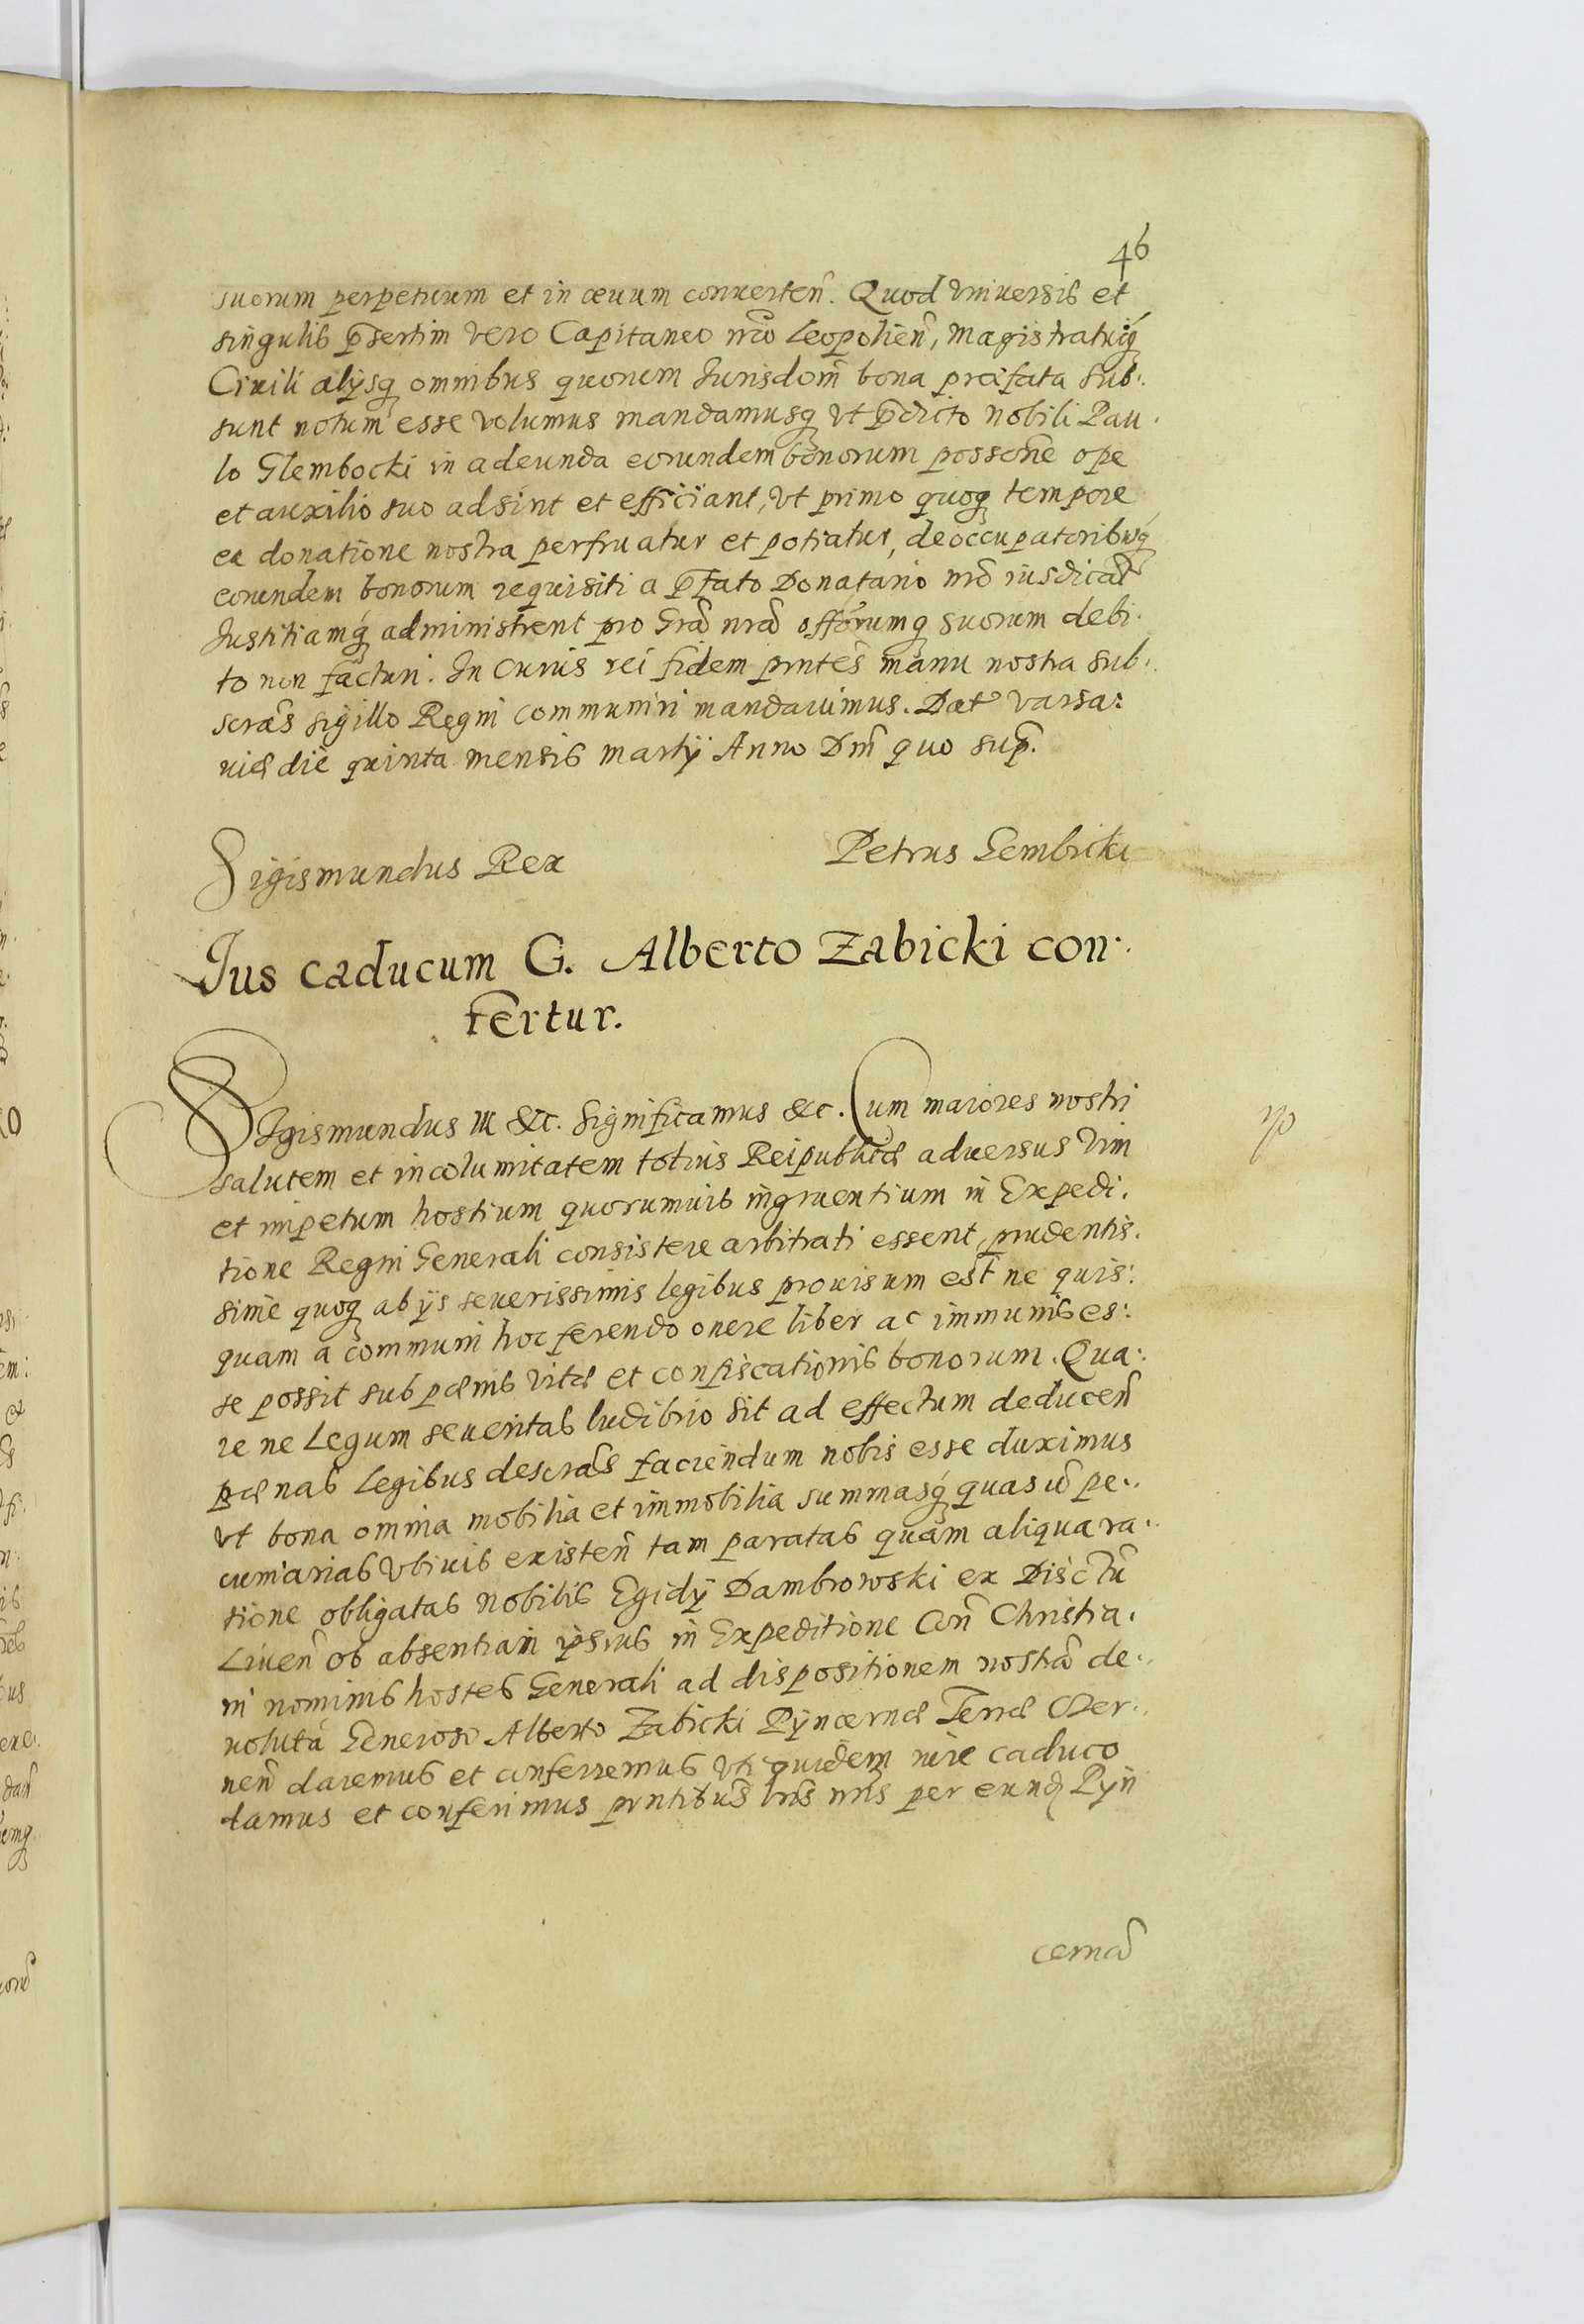 46
suorum perpetuum et in æuum conuerten̄. Quod Vniuersis et
singulis p̄sertim vero Capitaneo nr̄o Leopolien̄, Magistratuiq́
Ciuili alijsq omnibus quorum Jurisdōm̄ bona præfata sub:
sunt notum esse volumus mandamusq vt p̄dicto Nobili Pau:
lo Glembocki in adeunda eorundem bonorum possōne ope
et auxilio suo adsint et efficiant, vt primo quoq tempore
ea donatione nostra perfruatur et potiatur, de occupatoribusq́
eorundem bonorum requisiti a p̄fato Donatario nr̄o iusdicāt
Justitiamq́ administrent pro Grā nrā offōrumq suorum debi:
to non facturi. In Cuius rei fidem pn̄tes manu nostra sub:
scrās sigillo Regni communiri mandauimus. Dat Varsa:
uiæ die quinta mensis Martij Anno Dn̄i quo sup̄.
Sigismundus Rex Petrus Gembicki
Jus caducum G. Alberto Zabicki con:
fertur.
Sigismundus III &c. Significamus &c. Cum maiores nostri
salutem et incolumitatem totius Reipublicæ aduersus vim
et impetum hostium quorumuis ingruentium in Expedi:
tione Regni Generali consistere arbitrati essent, prudentis:
sime quoq ab ijs seuerissimis legibus prouisum est ne quis:
quam a communi hoc ferendo onere liber ac immunis es:
se possit sub pænis vitæ et confiscationis bonorum. Qua:
re ne Legum seueritas ludibrio sit ad effectum deducen̄
pænas Legibus descrās faciendum nobis esse duximus
vt bona omnia mobilia et immobilia summasq́ quasuis pe:
cuniarias vbiuis existen̄ tam paratas quam aliqua ra:
tione obligatas Nobilis Egidij Dambrowski ex Disctū
Liuen̄ ob absentiam ipsius in Expeditione Con̄ Christia:
ni nominis hostes Generali ad dispositionem nostrā de:
uoluta Generoso Alberto Zabicki Pijncernæ Terræ Cer:
nen̄ daremus et conferremus vti quidem iure caduco
damus et conferimus pn̄tibus lr̄is nr̄is per eund Pijn
cernā